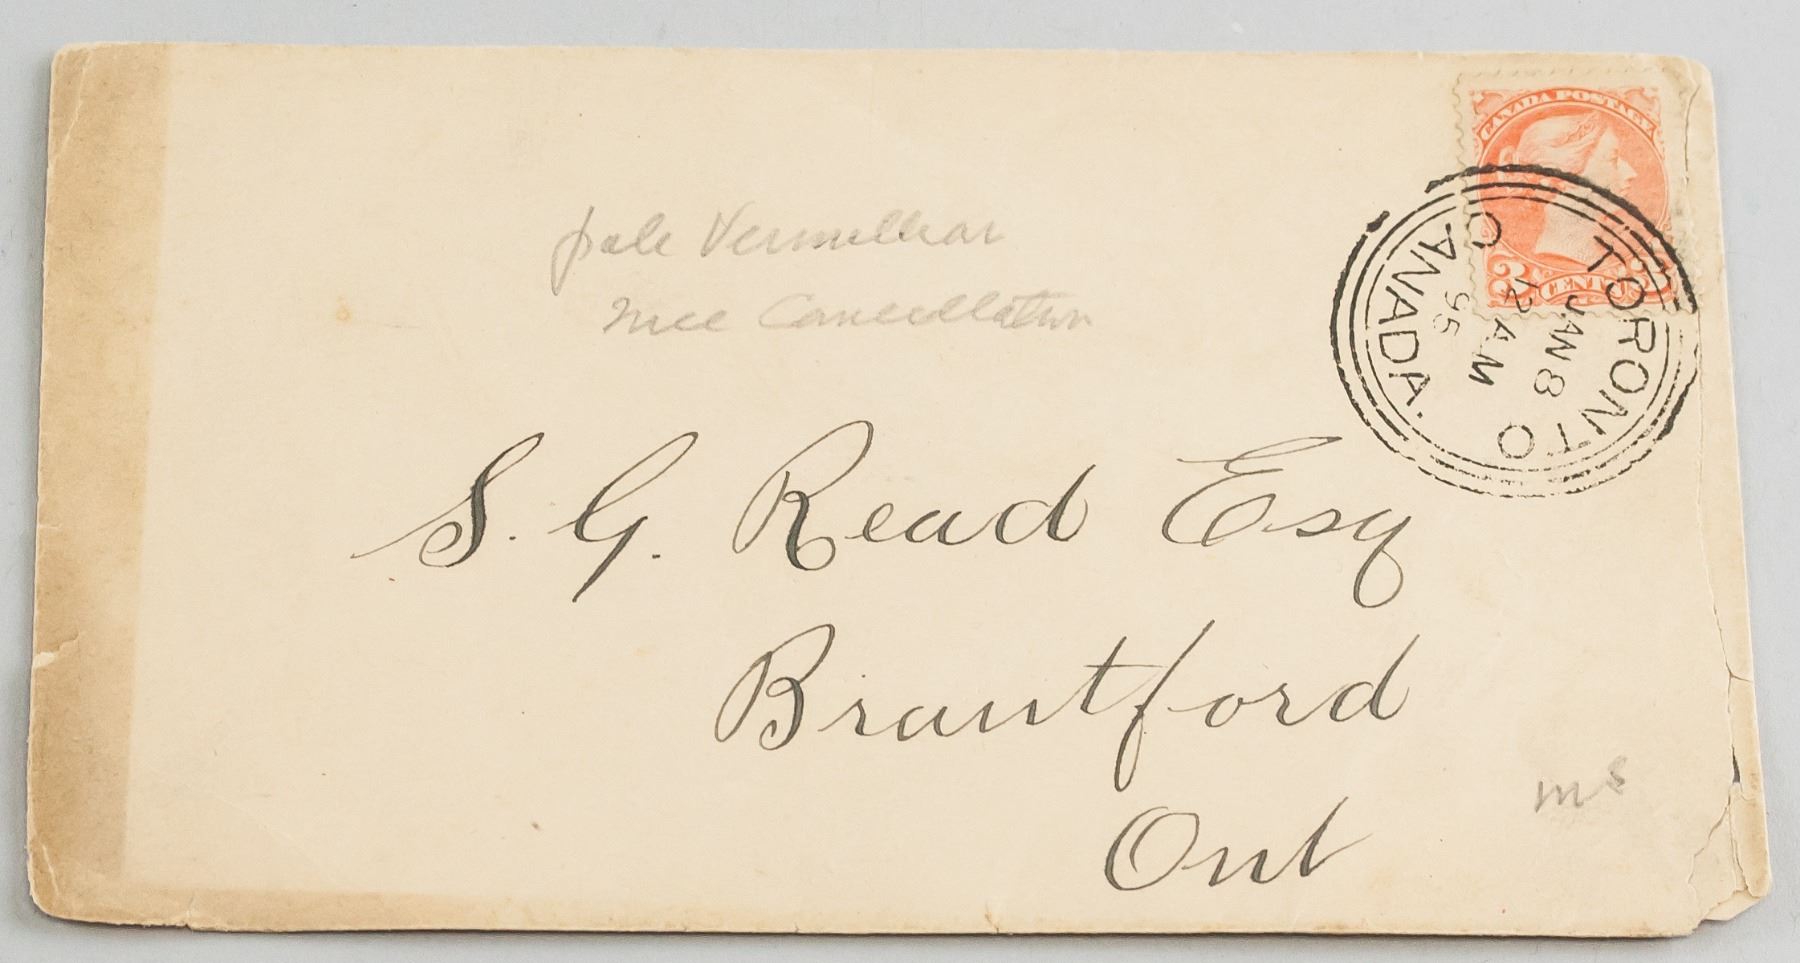 CANADA POSTAGE
3 CENTS 3
TORONTO
CANADA.
JAN 8
12 AM
95
pale Vermillion
nice Cancellation
S. G. Read Esq
Brantford
Ont